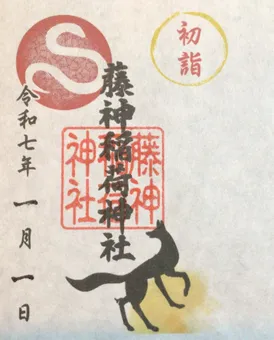 初詣
藤神稲荷神社
藤神
神社
令和七年 一月一日